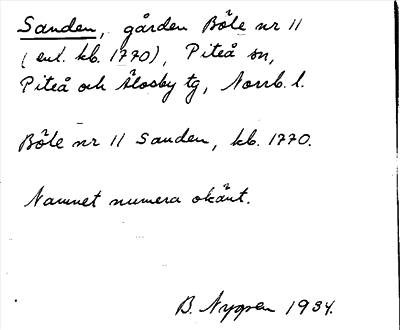 Sanden, gården Böle nr 11
(enl. kb. 1770), Piteå sn,
Piteå och Älvsby tg, Norrb. l.
Böle nr 11 Sanden, kb. 1770.
Namnet numera okänt.
B. Nygren 1934.